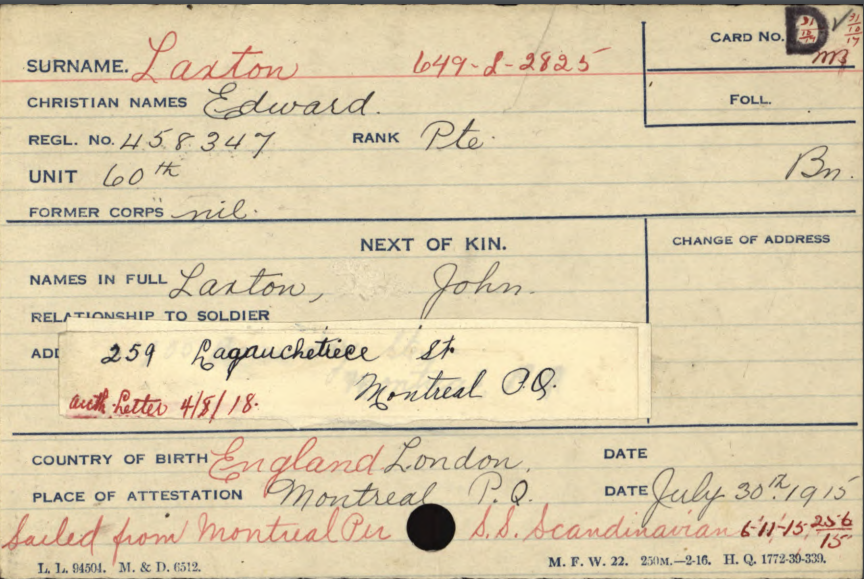 CARD NO. D 31 10 17
SURNAME. Laxton 649-L-2825
CHRISTIAN NAMES Edward.
FOLL.
REGL. No. 458347 RANK Pte.
UNIT 60th Bn.
FORMER CORPS nil.
NEXT OF KIN.
CHANGE OF ADDRESS
NAMES IN FULL Laxton, John.
RELATIONSHIP TO SOLDIER
ADD
259 Lagauchetiece St.
Montreal P.Q.
auth. Letter 4/8/18.
COUNTRY OF BIRTH England London. DATE
PLACE OF ATTESTATION Montreal P.Q. DATE July 30th. 1915
Sailed from Montreal Per S.S. Scandinavian 6-11-15
L. L. 94504. M. & D. 6512. M. F. W. 22. 250M.—2-16. H. Q. 1772-39-339.